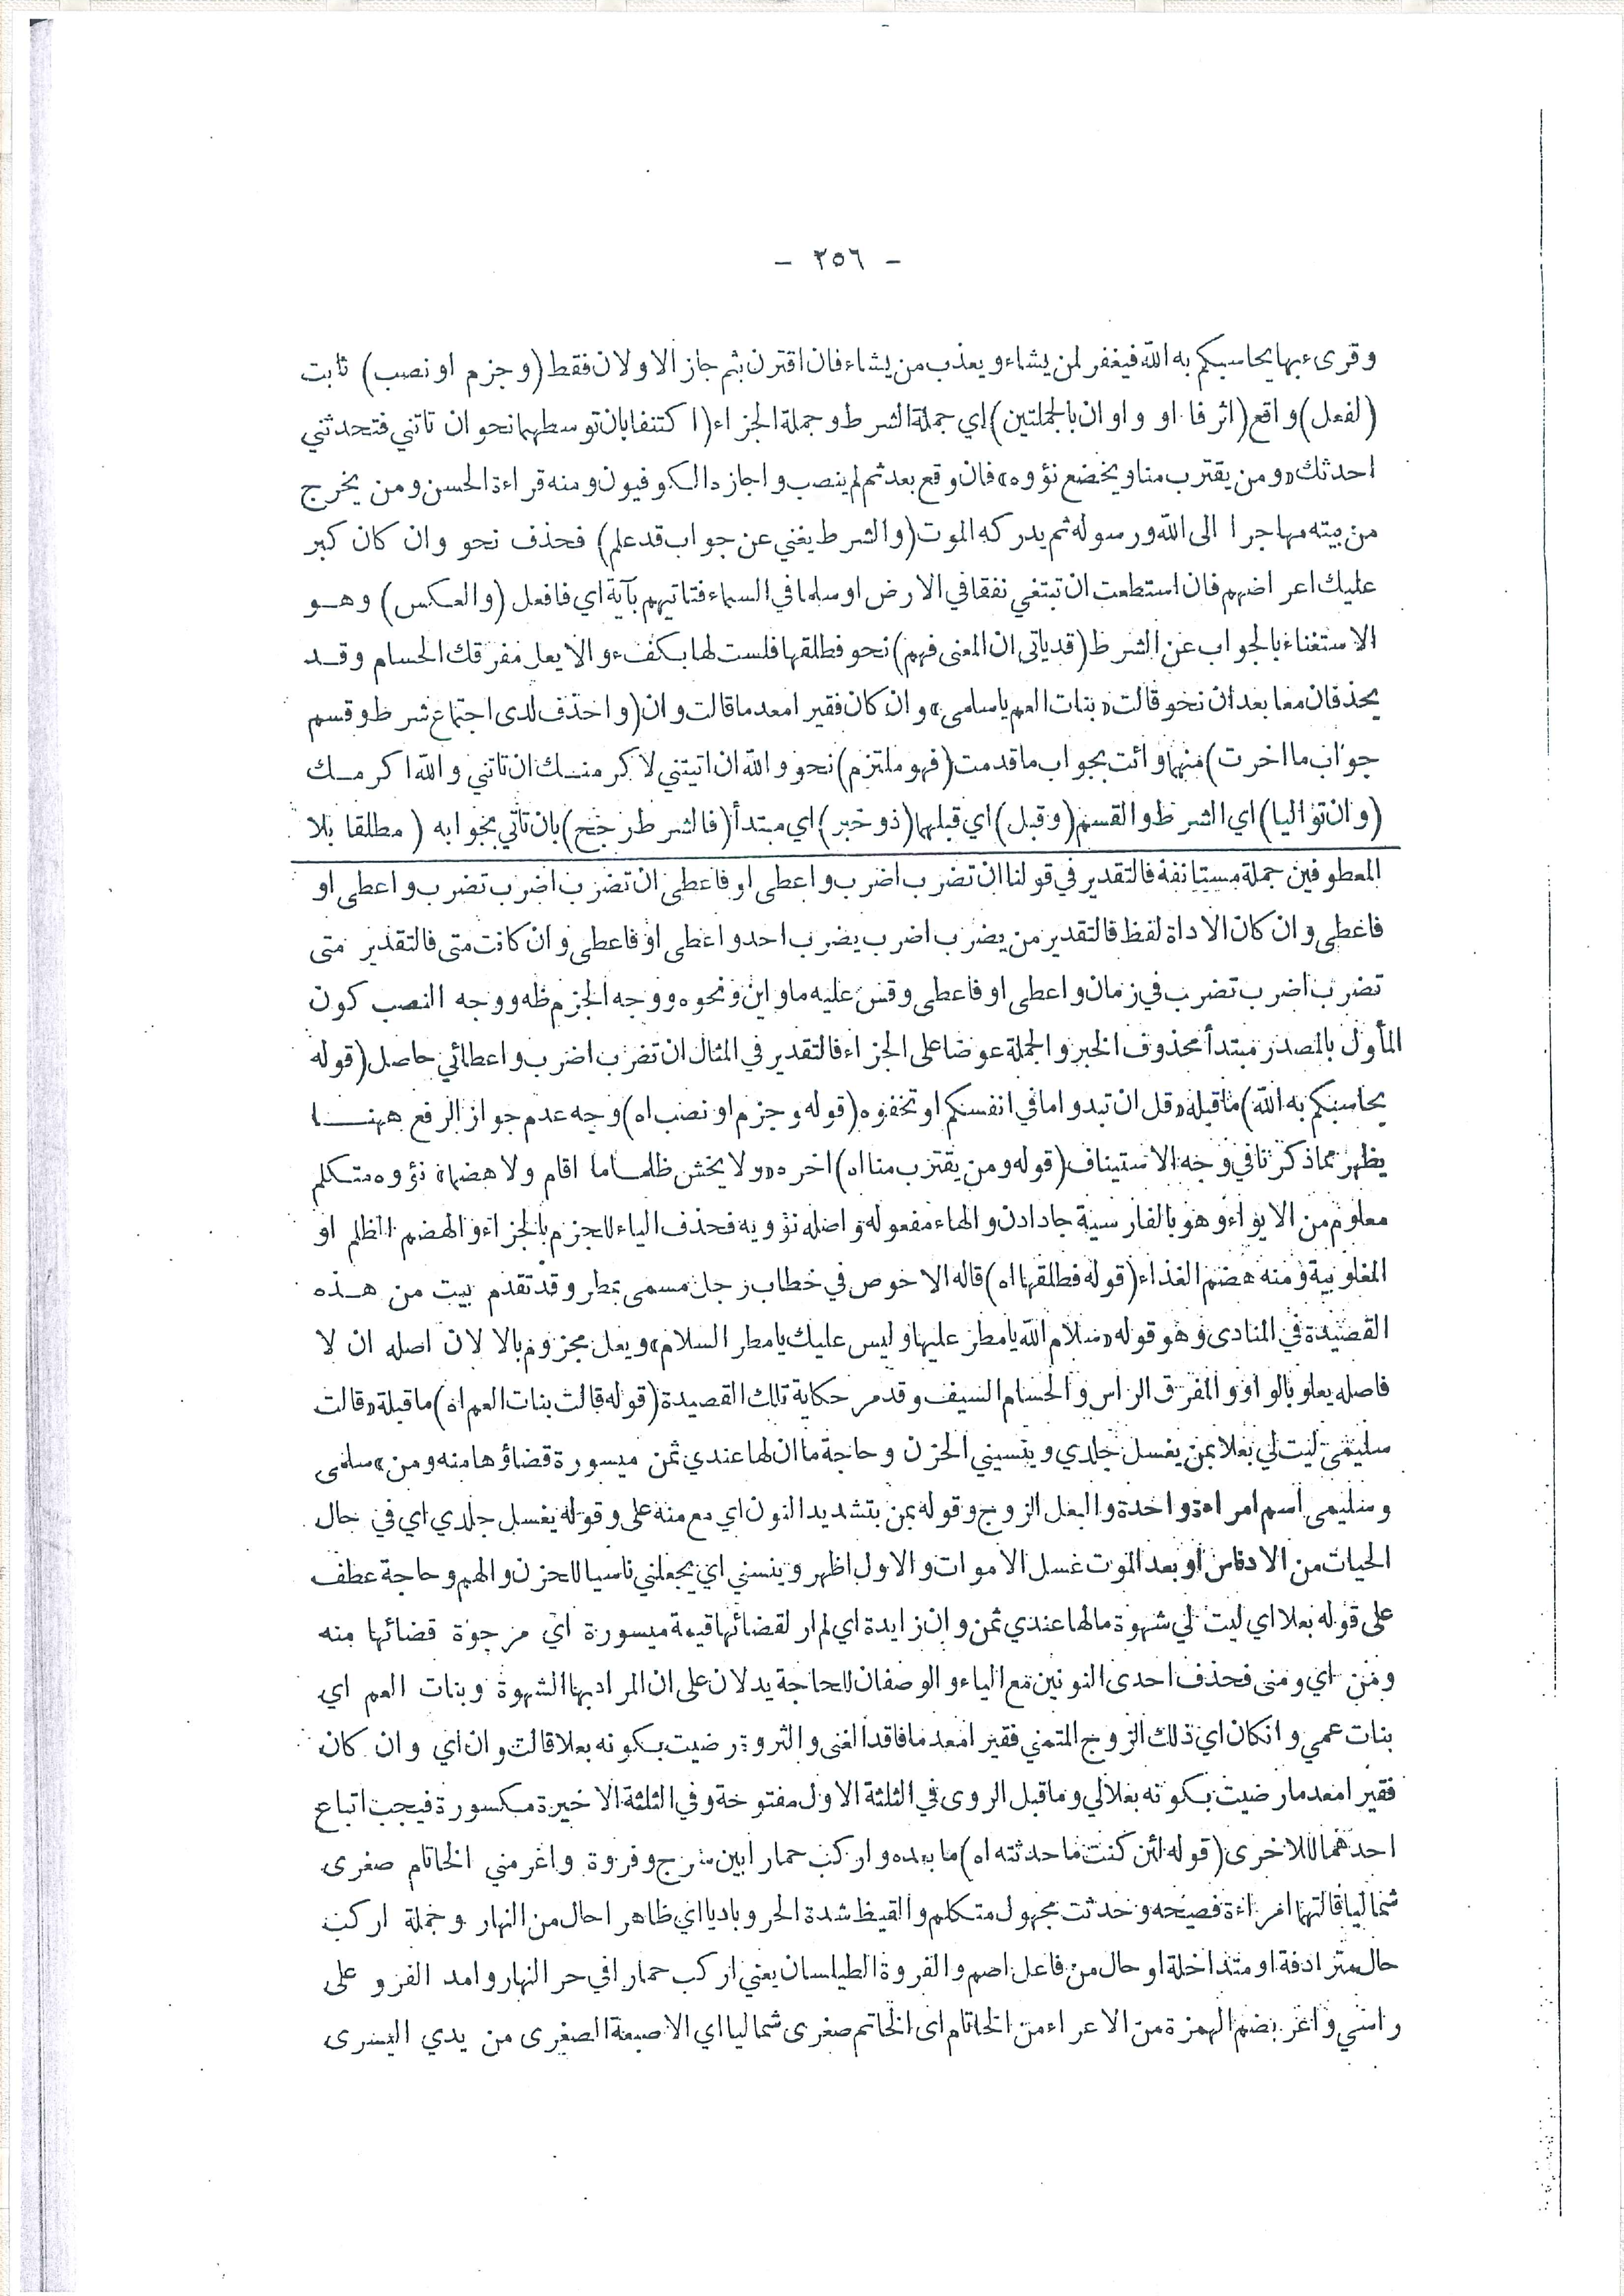 - ٣٥٦ -
وقرىء بها يحاسبكم به الله فيغفر لمن يشاء ويعذب من يشاء فان اقترن بثم جاز الاولان فقط (وجزم او نصب) ثابت
(لفعل) واقع (اثر فا او واو ان بالجملتين) اي جملة الشرط وجملة الجزاء (اكتنفا) بان توسطهما نحو ان تاتني فتحدثني
احدثك «ومن يقترب منا ويخضع نؤوه» فان وقع بعد ثم لم ينصب واجازه الكوفيون ومنه قراءة الحسن ومن يخرج
من بيته مهاجرا الى الله ورسوله ثم يدركه الموت (والشرط يغني عن جواب قد علم) فحذف نحو وان كان كبر
عليك اعراضهم فان استطعت ان تبتغي نفقا في الارض او سلما في السماء فتاتيهم بآية اي فافعل (والعكس) وهو
الاستغناء بالجواب عن الشرط (قد ياتي ان المعنى فهم) نحو فطلقها فلست لها بكفء والا يعل مفرقك الحسام وقد
يحذفان معا بعد ان نحو قالت «بنات العم يا سلمى» وان كان فقيرا معدما قالت وان (واحذف لدى اجتماع شرط وقسم
جواب ما اخرت) منهما وائت بجواب ما قدمت (فهو ملتزم) نحو والله ان اتيتني لاكرمنك ان تاتني والله اكرمك
(وان تواليا) اي الشرط والقسم (وقبل) اي قبلهما (ذو خبر) اي مبتدأ (فالشرط رجح) بان تاتي بجوابه (مطلقا بلا
المعطوفين جملة مستانفة فالتقدير في قولنا ان تضرب اضرب واعطى او فاعطى ان تضرب اضرب تضرب واعطى او
فاعطى وان كان الاداة لفظ فالتقدير من يضرب اضرب يضرب احد واعطى او فاعطى وان كانت متى فالتقدير متى
تضرب اضرب تضرب في زمان واعطى او فاعطى وقس عليه ما واين ونحوه ووجه الجزم ظه ووجه النصب كون
المأول بالمصدر مبتدأ محذوف الخبر والجملة عوضا على الجزاء فالتقدير في المثال ان تضرب اضرب واعطائي حاصل (قوله
يحاسبكم به الله) ما قبله «قل ان تبدوا ما في انفسكم او تخفوه (قوله وجزم او نصب اه) وجه عدم جواز الرفع ههنا
يظهر مما ذكرنا في وجه الاستيناف (قوله ومن يقترب منا اه) اخره «ولا يخش ظلما ما اقام ولا هضما» نؤوه متكلم
معلوم من الايواء وهو بالفارسية جادادن والهاء مفعوله واصله نؤويه فحذف الياء للجزم بالجزاء والهضم الظلم او
المغلوبية ومنه هضم الغذاء (قوله فطلقها اه) قاله الاحوص في خطاب رجل مسمى بمطر وقد تقدم بيت من هذه
القصيدة في المنادى وهو قوله «سلام الله يا مطر عليها وليس عليك يا مطر السلام» ويعل مجزوم بالا لان اصله ان لا
فاصله يعلو بالواو والمفرق الراس والحسام السيف وقد مر حكاية تلك القصيدة (قوله قالت بنات العم اه) ما قبلة «قالت
سليمى ليت لي بعلا بمن يغسل جلدي وينسيني الحزن وحاجة ما ان لها عندي ثمن ميسورة قضاؤها منه ومن» سلمى
وسليمى اسم امراءة واحدة والبعل الزوج وقوله بمن بتشديد النون اي مع منه على وقوله يغسل جلدي اي في حال
الحيات من الادناس او بعد الموت غسل الاموات والاول اظهر وينسني اي يجعلني ناسيا للحزن والهم وحاجة عطف
على قوله بعلا اي ليت لي شهوة ما لها عندي ثمن وان زايدة اي لم ار لقضائها قيمة ميسورة اي مرجوة قضائها منه
ومن اي ومنى فحذف احدى النونين مع الياء والوصفان للحاجة يدلان على ان المراد بها الشهوة وبنات العم اي
بنات عمي وانكان اي ذلك الزوج المتمني فقيرا معدما فاقد الغنى والثروة رضيت بكونه بعلا قالت وان اي وان كان
فقيرا معدما رضيت بكونه بعلا لي وما قبل الروى في الثلثة الاول مفتوحة وفي الثلثة الاخيرة مكسورة فيجب اتباع
احدهما للاخرى (قوله لئن كنت ما حدثته اه) ما بعده واركب حمارا بين سرج وفروة واغر مني الخاتام صغرى
شماليا قالتها امراءة فصيحه وحدثت مجهول متكلم والقيظ شدة الحر وباديا اي ظاهرا حال من النهار وجملة اركب
حال مترادفة او متداخلة او حال من فاعل اصم والفروة الطيلسان يعني اركب حمارا في حر النهار وامد الفرو على
راسي واغر بضم الهمزة من الاعراء من الخاتام اى الخاتم صغرى شماليا اي الاصبعة الصغرى من يدي اليسرى